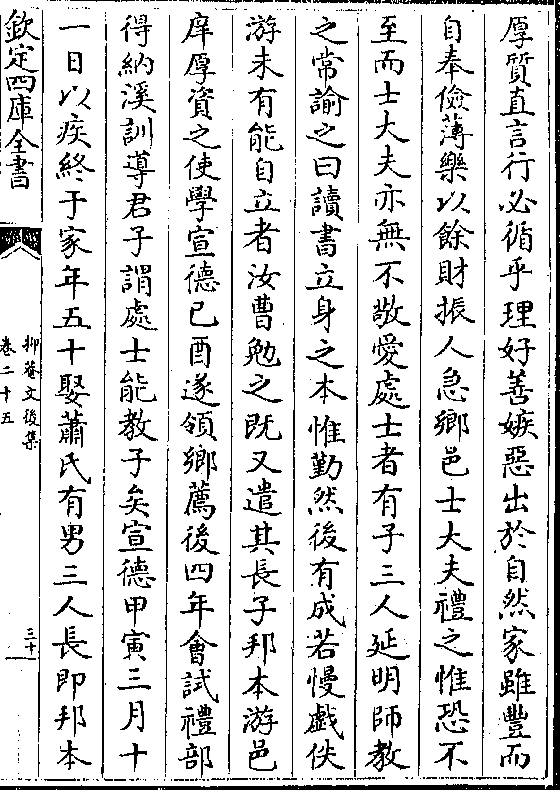 厚質直言行必循乎理好善嫉惡出於自然家雖豐而
自奉儉薄樂以餘財振人急鄉邑士大夫禮之惟恐不
至而士大夫亦無不敬愛處士者有子三人延明師教
之常諭之曰讀書立身之本惟勤然後有成若慢戲佚
游未有能自立者汝曹勉之既又遣其長子邦本游邑
庠厚資之使學宣德己酉遂領鄉薦後四年會試禮部
得納溪訓導君子謂處士能教子矣宣德甲寅三月十
一日以疾終于家年五十娶蕭氏有男三人長即邦本
欽定四庫全書
抑菴文後集
卷二十五
三十